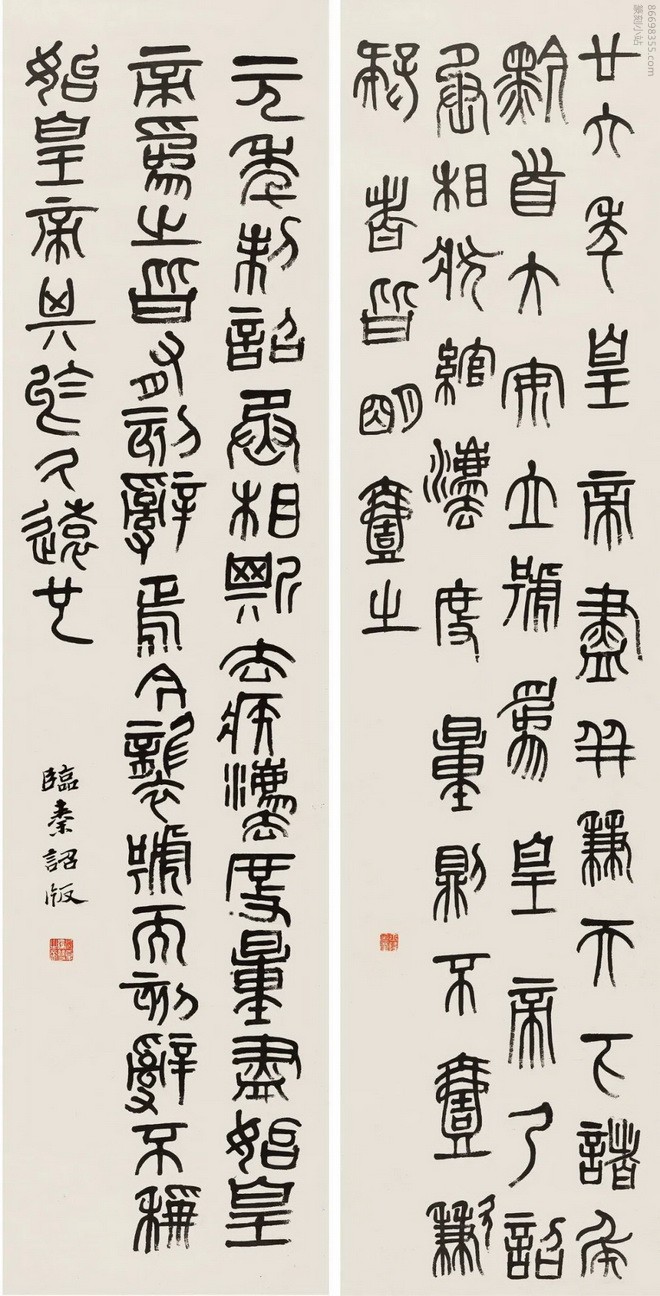 86698355.com
篆刻小站
廿六年皇帝盡并兼天下諸侯
黔首大安立號爲皇帝乃詔
丞相狀綰灋度量則不壹歉
疑者皆明壹之
元年制詔丞相斯去疾灋度量盡始皇
帝爲之皆有刻辭焉今襲號而刻辭不稱
始皇帝其於久遠也
臨秦詔版